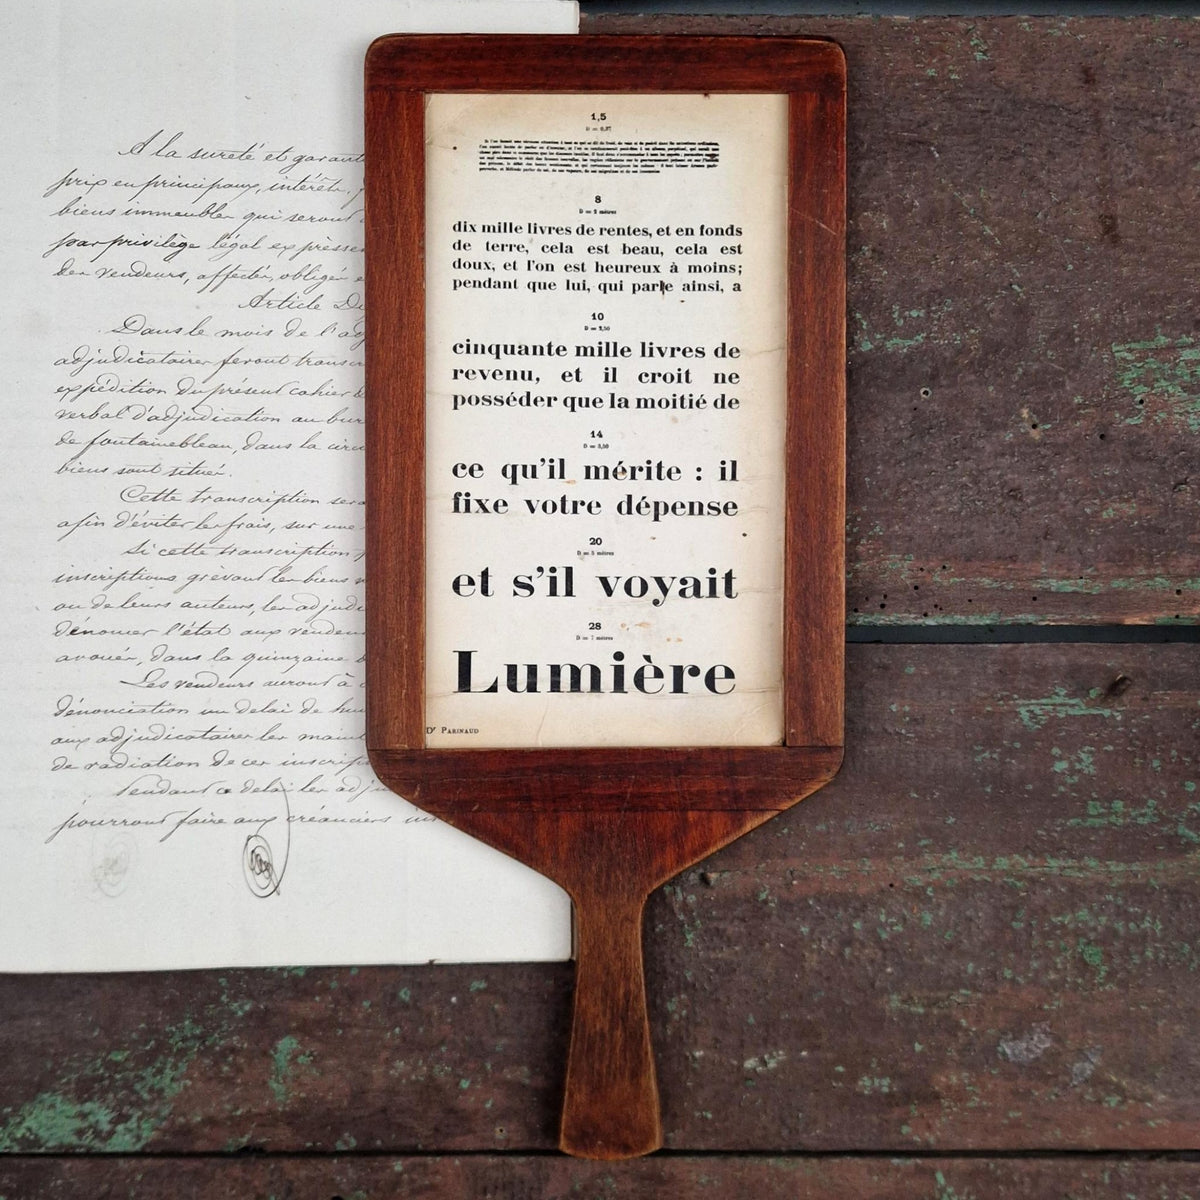 A la sureté et garant
prix en principaux, intérêts,
biens immeubles qui seront
par privilège légal expresse
des vendeurs, affectés, obligés e
Article D
Dans le mois de l'adj
adjudicataires feront transc
expédition du présent cahier d
verbal d'adjudication au bur
de fontainebleau, dans la circ
biens sont situés.
Cette transcription sera
afin d'éviter les frais, sur une
Si cette transcription
inscriptions grévant les biens
ou de leurs auteurs, les adjudi
dénoncer l'état aux vendeurs
avoués, dans la quinzaine d
Les vendeurs auront à
dénonciation un delai de hui
aux adjudicataires les main
de radiation de ces inscrip
Pendant ce delai les adju
pourront faire aux créanciers ins
1,5
8
D = 2 mètres
dix mille livres de rentes, et en fonds
de terre, cela est beau, cela est
doux, et l'on est heureux à moins;
pendant que lui, qui parle ainsi, a
10
D = 2,50
cinquante mille livres de
revenu, et il croit ne
posséder que la moitié de
14
D = 3,50
ce qu'il mérite : il
fixe votre dépense
20
D = 5 mètres
et s'il voyait
28
D = 7 mètres
Lumière
Dr Parinaud